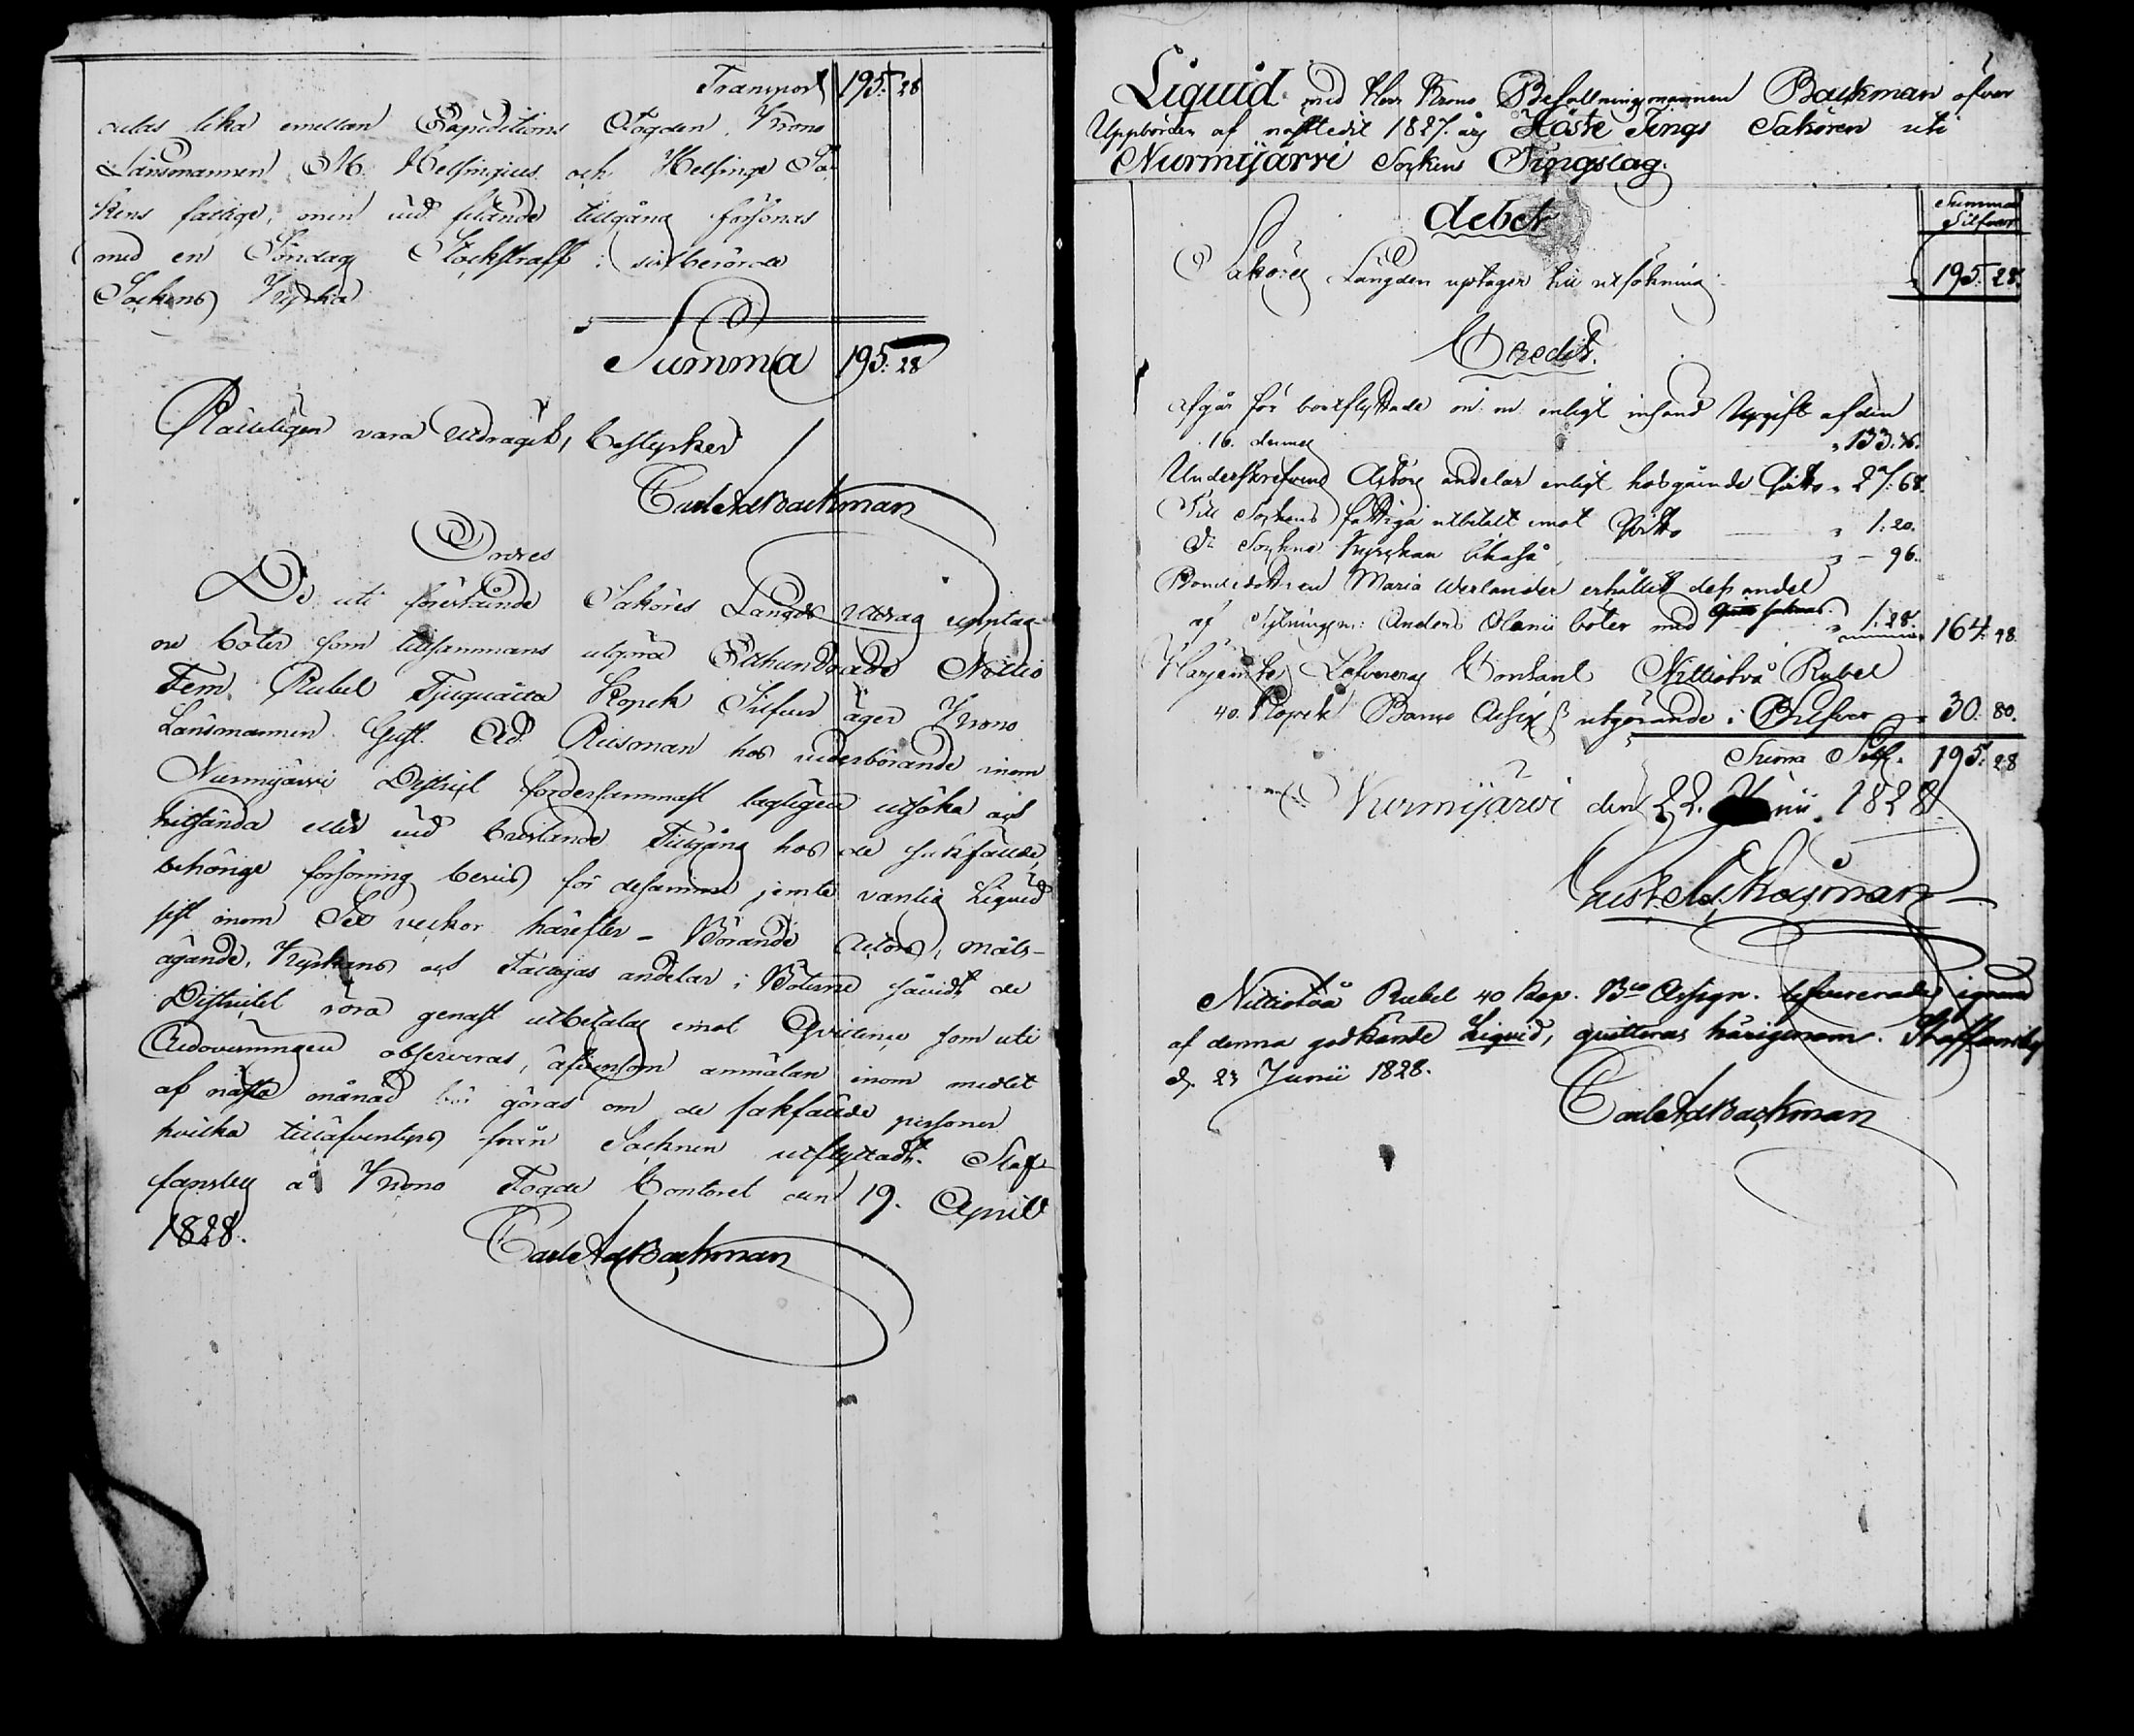 Transport 195: 28
delas lika emellan Expeditions Fogden, Krono
Länsmannen M. Helsingius och Helsinge Soc-
kens fattige, men vid felande tillgång försonas
med en Söndags Stockstraff i sistberörde
Sockens Kyrka
Summa 195: 28
Rätteligen vara Utdragit, bestyrker
Carl Ad Backman
Ordres
De uti förestående Saköres Längds Utdrag upptag-
ne böter som tillsammans utgöra Etthundrade Nittio
Fem Rubel Tjuguåtta Kopek Silfver äger Krono
Länsmannen Gust. Ad. vederbörande inom
Nurmijärvi District fordersammast lagligen utsöka och
hitsända eller vid bristande Tillgång hos de sakfällde,
behörige försoning bevis för desamma jemte vanlig Liquid
sist inom Sex veckor härefter - Börande Actors, måls-
ägande, Kyrkans och Fattigas andelar i Böterne såvidt de
Districtet röra genast utbetalas emot Qvittence som uti
Redovisningen observeras, äfvensom anmälan inom medlet
af nästa månad bör göras om de sakfällde personer
hvilka tilläfventyrs från Socknen utflyttadt. Staf-
fansby å Krono Fogde Contoret den 19. April
1828.
Carl Ad Backman
Liquid med Herr Krono Befallningsmannen Backman öfver
Uppbörden af näst ledit 1827. års Höste Tings Sakören uti
Nurmijärvi Sockens Tingslag.
Debet
Summa
Silfver
Saköres Längden uptager til utsökning 195: 28.
Credit.
Afgår för bortflyttade m. m. enligt insänd Upgift af den
16. dennes 133. 36.
Underskrefvens Actors andelar enligt hosgående Qvitto 27: 68.
Till Sockens fattiga utbetalt emot Qvitto 1: 20.
D:o Sockne Kyrckan likaså - 96.
Bondedottren Maria Werlander erhållit dess andel
af Sytningsm: Anders Olanii böter med 1: 28. 164: 48.
Harjemte Lefvereras Contant Nittiotvå Rubel
40. Kopek Banco Assign utgörande i Silfver 30: 80.
Summa Silf. 195: 28
Nurmijärvi den 22. Junii 1828.
Gust. Ad.
Nittiotvå Rubel 40 Kop. Bco Assign. lefvererade i grund
af denna godkände Liquid, quitteras härigenom. Staffansby
d. 23 Junii 1828.
Carl Ad Backman